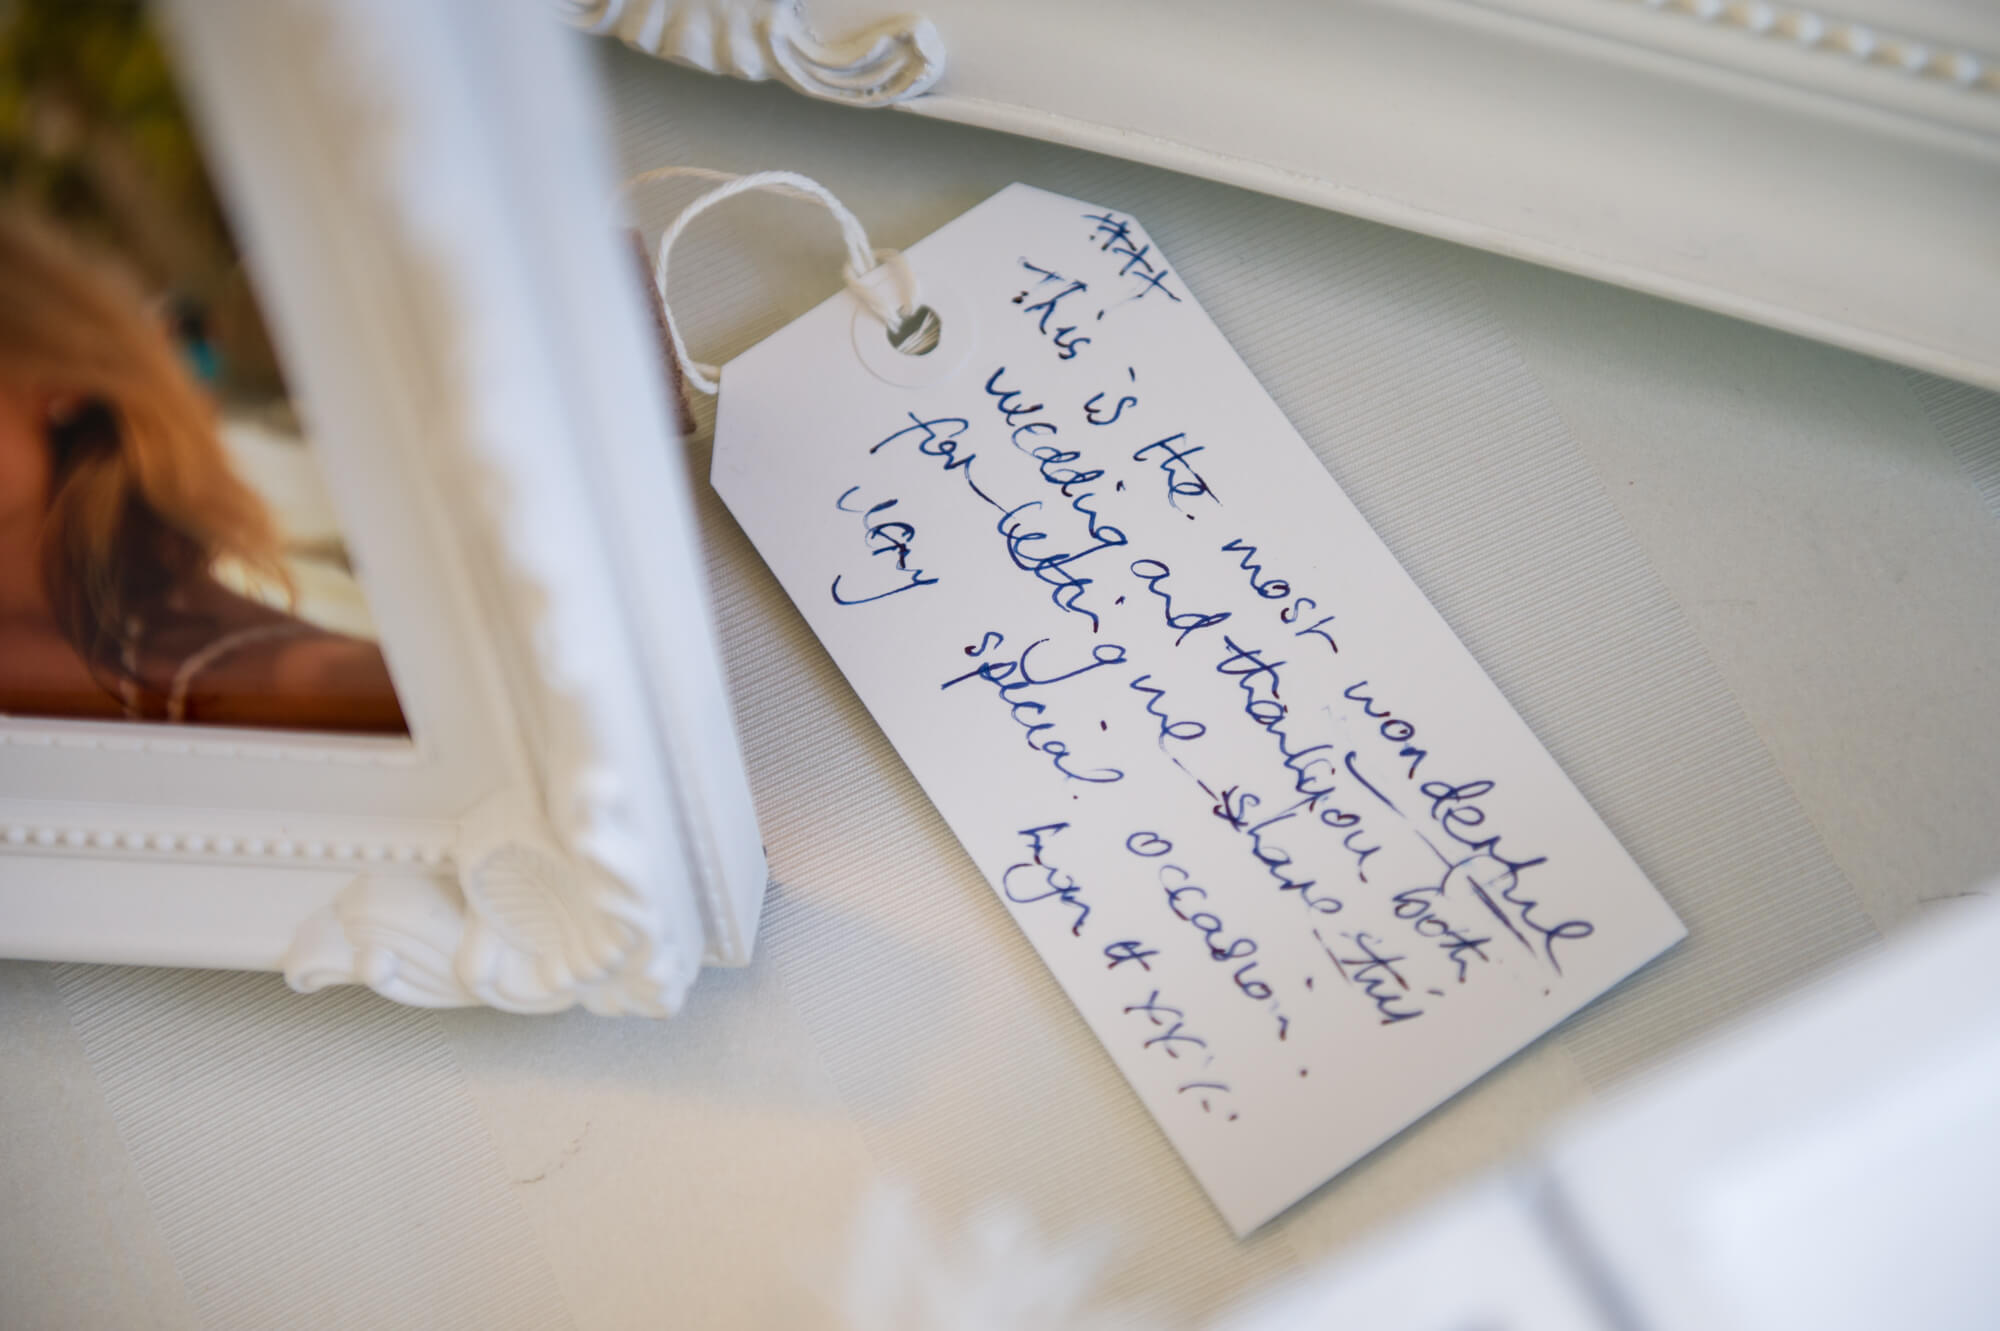 This is the most wonderful
wedding and thankyou both
for letting me share this
very special occasion.
xx